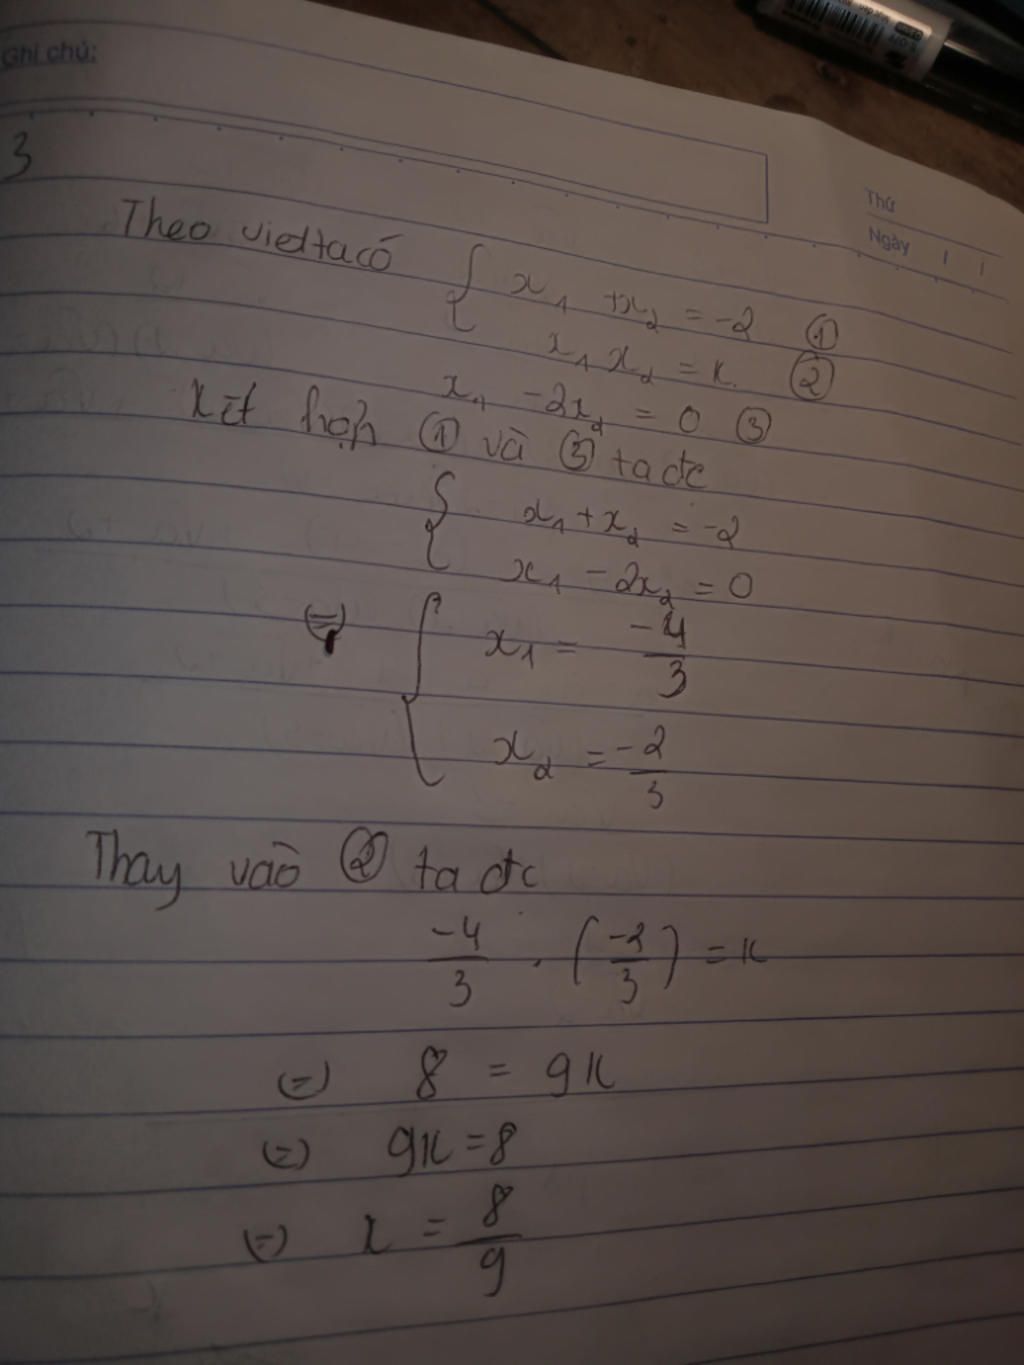 Ghi chú:
Thứ
Ngày
3
Theo viet ta có { x₁ + x₂ = -2 ①
x₁ x₂ = k. ②
x₁ - 2x₂ = 0 ③
Kết hợp ① và ③ ta đc
{ x₁ + x₂ = -2
x₁ - 2x₂ = 0
(=) { x₁ = -4/3
x₂ = -2/3
Thay vào ② ta đc
-4/3 . (-2/3) = k
(=) 8 = 9k
(=) 9k = 8
(=) k = 8/9